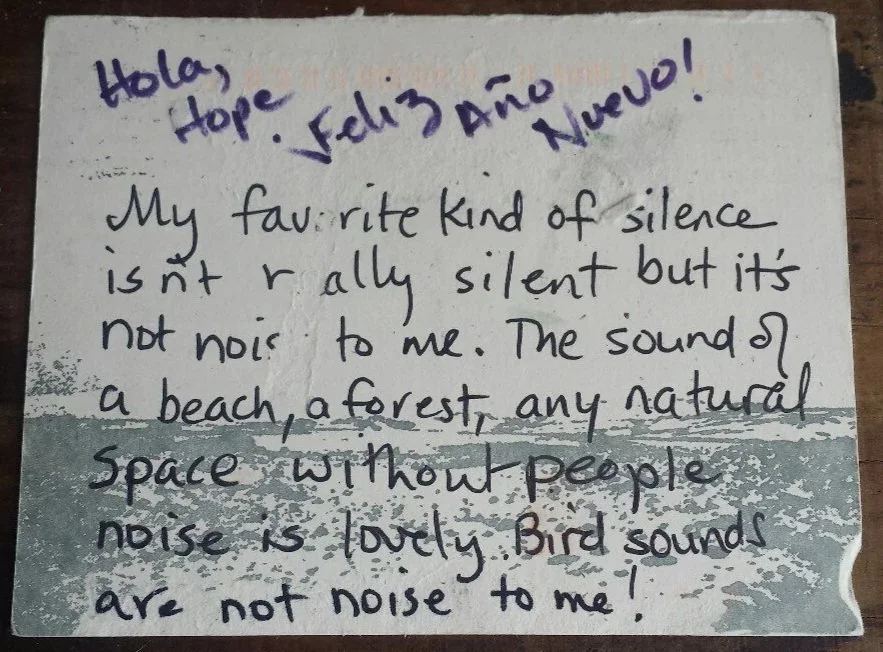 Hola,
Hope. Feliz Año Nuevo!
My favorite kind of silence
isn't really silent but it's
not noise to me. The sound of
a beach, a forest, any natural
space without people
noise is lovely. Bird sounds
are not noise to me!